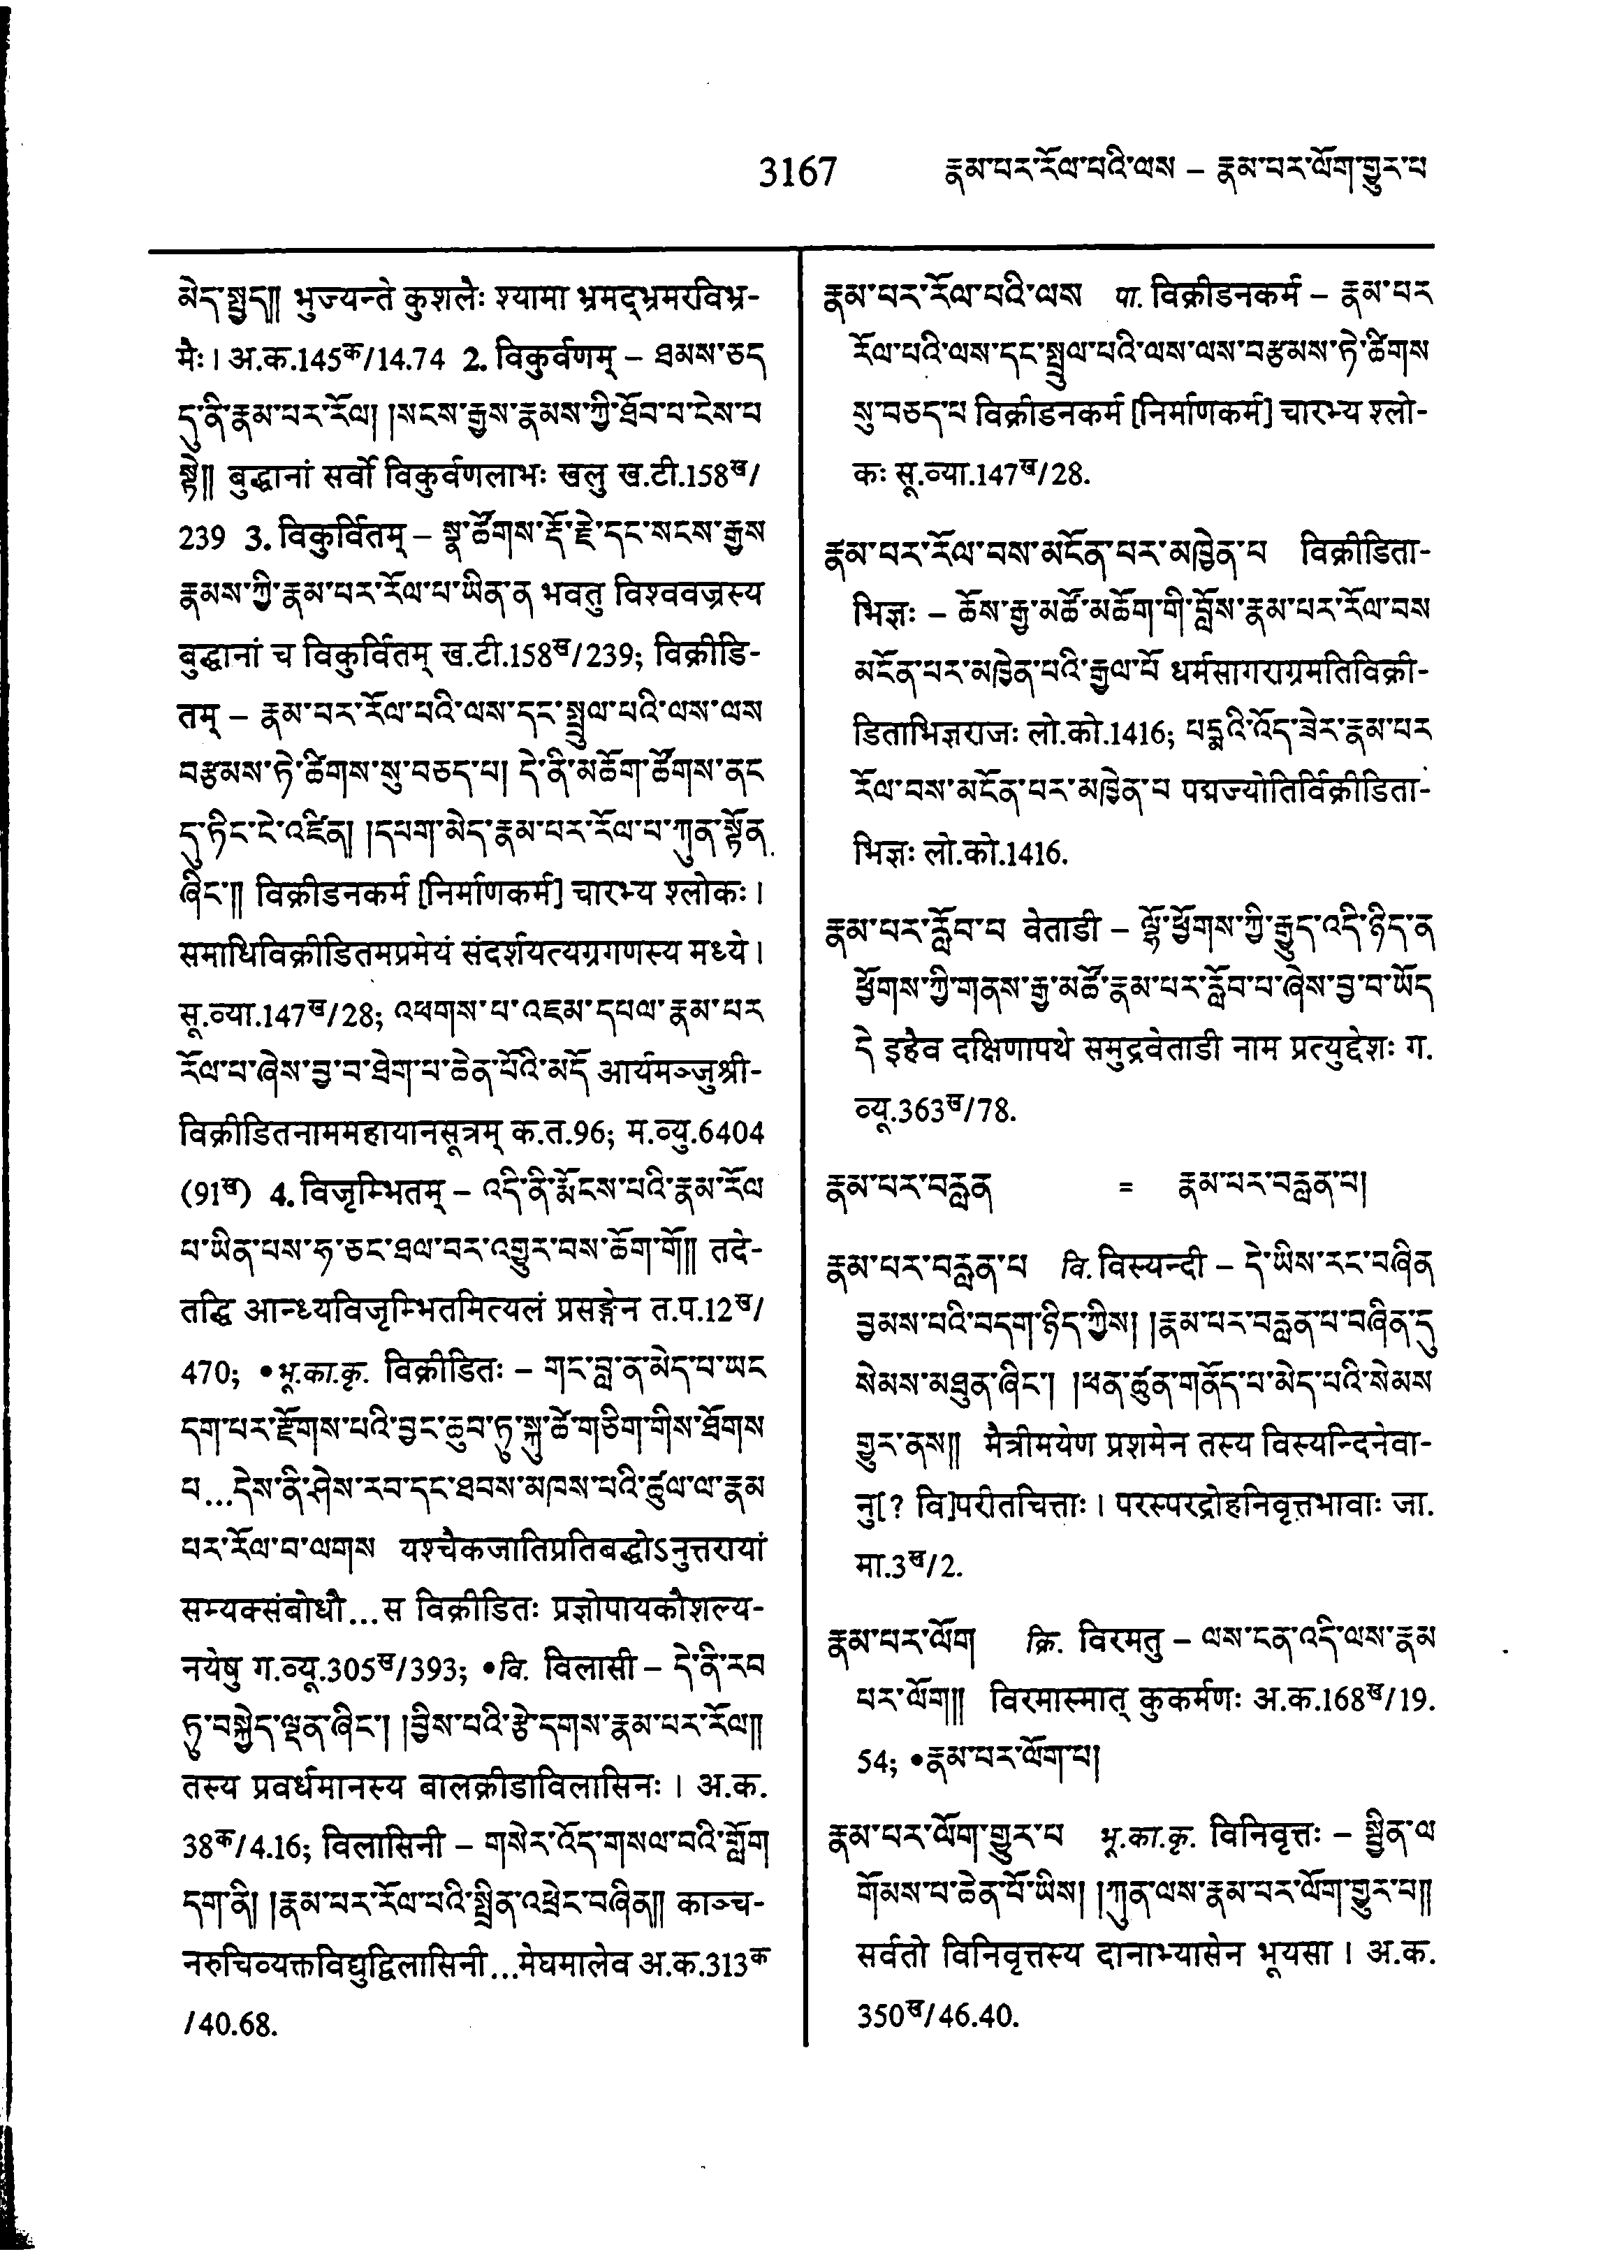 3167 རྣམ་པར་རོལ་པའི་ལས – རྣམ་པར་ལོག་གྱུར་པ
མེད་སྤྱད༎ भुज्यन्ते कुशलैः श्यामा भ्रमद्भ्रमरविभ्र-
मैः। अ.क.145क/14.74 2. विकुर्वणम् – ཐམས་ཅད
དུ་ནི་རྣམ་པར་རོལ། །སངས་རྒྱས་རྣམས་ཀྱི་ཐོབ་པ་ངེས་པ
སྟེ༎ बुद्धानां सर्वो विकुर्वणलाभः खलु ख.टी.158ख/
239 3. विकुर्वितम् – སྣ་ཚོགས་རྡོ་རྗེ་དང་སངས་རྒྱས
རྣམས་ཀྱི་རྣམ་པར་རོལ་པ་ཡིན་ན भवतु विश्ववज्रस्य
बुद्धानां च विकुर्वितम् ख.टी.158ख/239; विक्रीडि-
तम् – རྣམ་པར་རོལ་པའི་ལས་དང་སྤྲུལ་པའི་ལས་ལས
བརྩམས་ཏེ་ཚིགས་སུ་བཅད་པ། དེ་ནི་མཆོག་ཚོགས་ནང
དུ་ཏིང་ངེ་འཛིན། །དཔག་མེད་རྣམ་པར་རོལ་པ་ཀུན་སྟོན
ཞིང་༎ विक्रीडनकर्म [निर्माणकर्म] चारभ्य श्लोकः।
समाधिविक्रीडितमप्रमेयं संदर्शयत्यग्रगणस्य मध्ये।
सू.व्या.147ख/28; འཕགས་པ་འཇམ་དཔལ་རྣམ་པར
རོལ་པ་ཞེས་བྱ་བ་ཐེག་པ་ཆེན་པོའི་མདོ आर्यमञ्जुश्री-
विक्रीडितनाममहायानसूत्रम् क.त.96; म.व्यु.6404
(91ख) 4. विजृम्भितम् – འདི་ནི་རྨོངས་པའི་རྣམ་རོལ
པ་ཡིན་པས་ཧ་ཅང་ཐལ་བར་འགྱུར་བས་ཆོག་གོ༎ तदे-
तद्धि आन्ध्यविजृम्भितमित्यलं प्रसङ्गेन त.प.12ख/
470; •भू.का.कृ. विक्रीडितः – གང་བླ་ན་མེད་པ་ཡང
དག་པར་རྫོགས་པའི་བྱང་ཆུབ་ཏུ་སྐུ་ཚེ་གཅིག་གིས་ཐོགས
པ...དེས་ནི་ཤེས་རབ་དང་ཐབས་མཁས་པའི་ཚུལ་ལ་རྣམ
པར་རོལ་བ་ལགས यश्चैकजातिप्रतिबद्धोऽनुत्तरायां
सम्यक्संबोधौ...स विक्रीडितः प्रज्ञोपायकौशल्य-
नयेषु ग.व्यू.305ख/393; •वि. विलासी – དེ་ནི་རབ
ཏུ་བསྐྱེད་ལྡན་ཞིང་། །བྱིས་པའི་རྩེ་དགས་རྣམ་པར་རོལ༎
तस्य प्रवर्धमानस्य बालक्रीडाविलासिनः। अ.क.
38क/4.16; विलासिनी – གསེར་འོད་གསལ་བའི་གློག
དག་ནི། །རྣམ་པར་རོལ་པའི་སྤྲིན་འཕྲེང་བཞིན༎ काञ्च-
नरुचिव्यक्तविद्युद्विलासिनी...मेघमालेव अ.क.313क
/40.68.
རྣམ་པར་རོལ་པའི་ལས पा. विक्रीडनकर्म – རྣམ་པར
རོལ་པའི་ལས་དང་སྤྲུལ་པའི་ལས་ལས་བརྩམས་ཏེ་ཚིགས
སུ་བཅད་པ विक्रीडनकर्म [निर्माणकर्म] चारभ्य श्लो-
कः सू.व्या.147ख/28.
རྣམ་པར་རོལ་བས་མངོན་པར་མཁྱེན་པ विक्रीडिता-
भिज्ञः – ཆོས་རྒྱ་མཚོ་མཆོག་གི་བློས་རྣམ་པར་རོལ་བས
མངོན་པར་མཁྱེན་པའི་རྒྱལ་པོ धर्मसागराग्रमतिविक्री-
डिताभिज्ञराजः लो.को.1416; པདྨའི་འོད་ཟེར་རྣམ་པར
རོལ་བས་མངོན་པར་མཁྱེན་པ पद्मज्योतिर्विक्रीडिता-
भिज्ञः लो.को.1416.
རྣམ་པར་རློབ་པ वेताडी – ལྷོ་ཕྱོགས་ཀྱི་རྒྱུད་འདི་ཉིད་ན
ཕྱོགས་ཀྱི་གནས་རྒྱ་མཚོ་རྣམ་པར་རློབ་པ་ཞེས་བྱ་བ་ཡོད
དེ इहैव दक्षिणापथे समुद्रवेताडी नाम प्रत्युद्देशः ग.
व्यू.363ख/78.
རྣམ་པར་བརླན = རྣམ་པར་བརླན་པ།
རྣམ་པར་བརླན་པ वि. विस्यन्दी – དེ་ཡིས་རང་བཞིན
བྱམས་པའི་བདག་ཉིད་ཀྱིས། །རྣམ་པར་བརླན་པ་བཞིན་དུ
སེམས་མཐུན་ཞིང་། །ཕན་ཚུན་གནོད་པ་མེད་པའི་སེམས
གྱུར་ནས༎ मैत्रीमयेण प्रशमेन तस्य विस्यन्दिनेवा-
नु[? वि]परीतचित्ताः। परस्परद्रोहनिवृत्तभावाः जा.
मा.3ख/2.
རྣམ་པར་ལོག क्रि. विरमतु – ལས་ངན་འདི་ལས་རྣམ
པར་ལོག༎ विरमास्मात् कुकर्मणः अ.क.168ख/19.
54; •རྣམ་པར་ལོག་པ།
རྣམ་པར་ལོག་གྱུར་པ भू.का.कृ. विनिवृत्तः – སྦྱིན་ལ
གོམས་པ་ཆེན་པོ་ཡིས། །ཀུན་ལས་རྣམ་པར་ལོག་གྱུར་པ༎
सर्वतो विनिवृत्तस्य दानाभ्यासेन भूयसा। अ.क.
350ख/46.40.